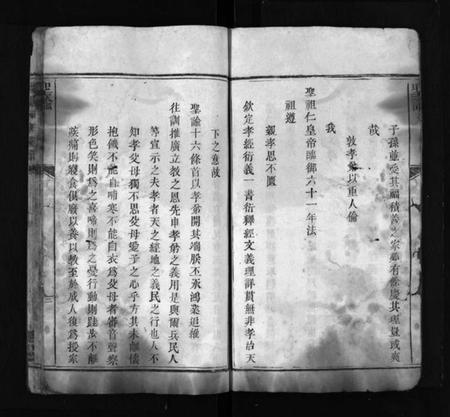 子孫並受其福積善之家必有餘慶其理豈或爽
哉
敦孝弟以重人倫
我
聖祖仁皇帝臨御六十一年法
祖遵
親孝思不匱
欽定孝經衍義一書衍釋經文義理詳貫無非孝治天
下之意故
聖諭十六條首以孝弟開其端朕丕承鴻業追維
往訓推廣立教之思先申孝弟之義用是與爾兵民人
等宣示之夫孝者天之經地之義民之行也人不
知孝父母獨不思父母愛子之心乎方其未離懷
抱饑不能自哺寒不能自衣為父母者審音聲察
形色笑則為之喜啼則為之憂行動則跬步不離
疾痛則寢食俱廢以養以教至於成人復為授家